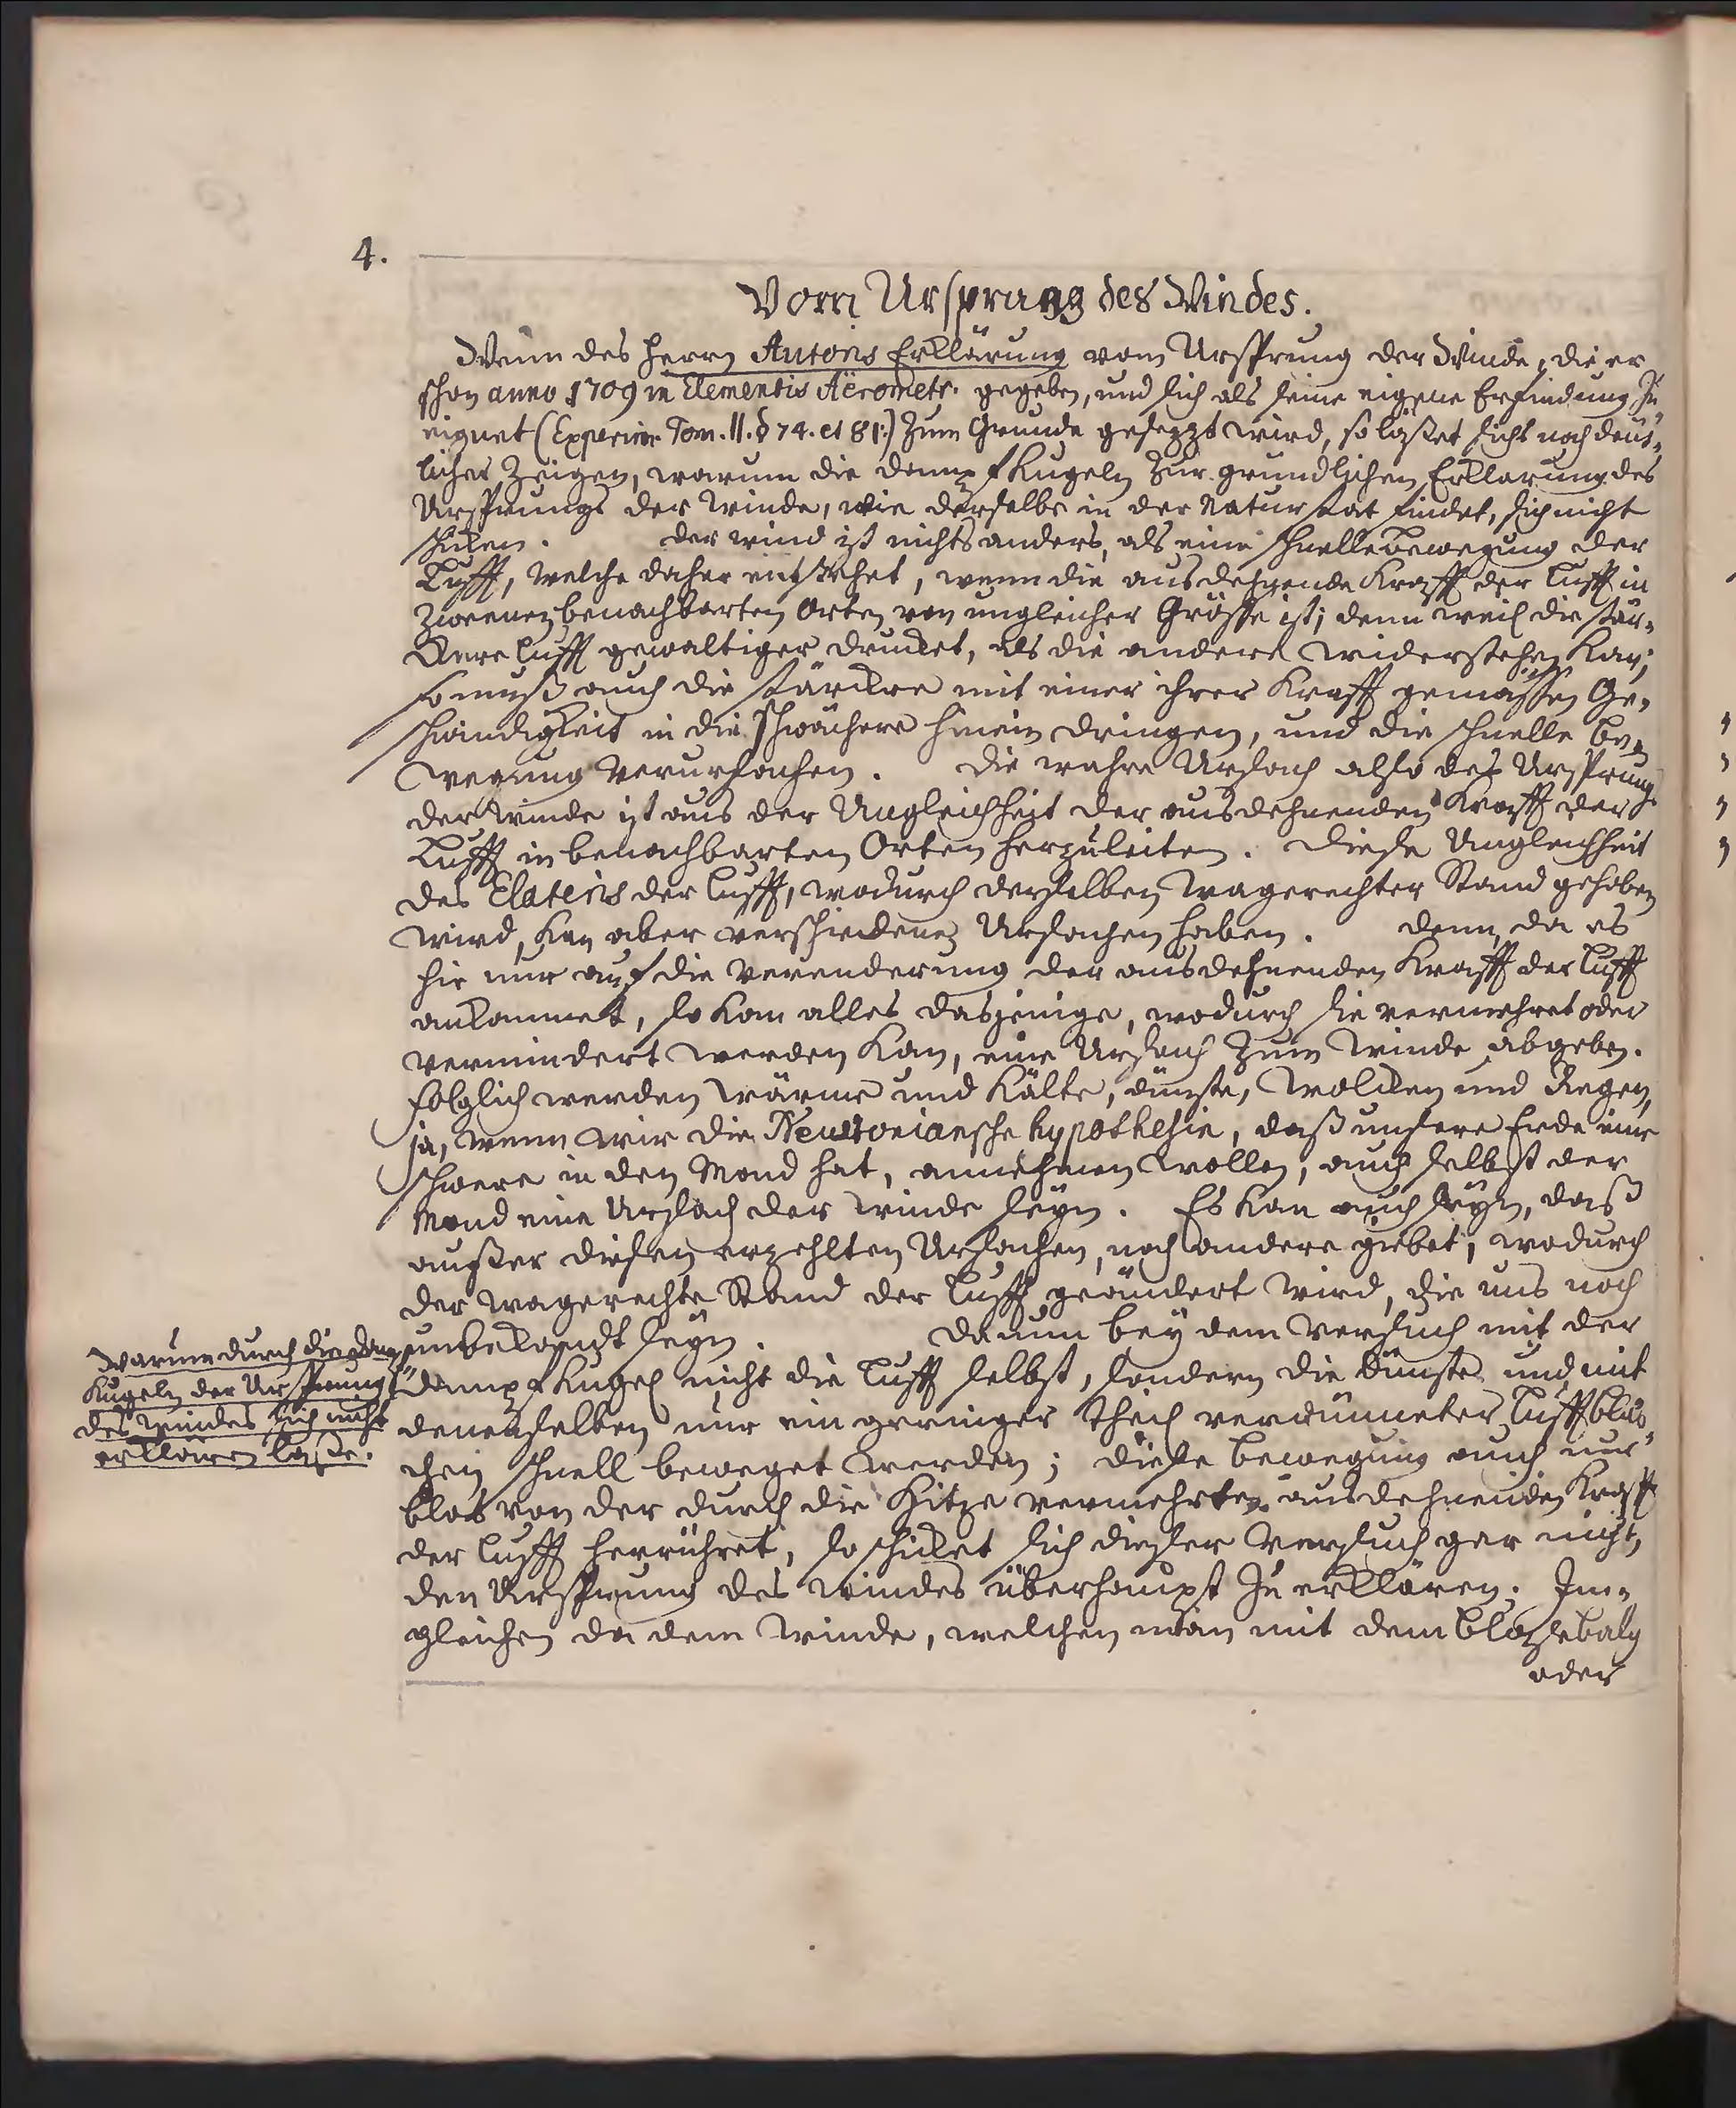 4.
Vom Ursprung des Windes.
Wenn des Herrn Autoris Erklärung vom Ursprung der Winde, die er
schon anno 1709 in Elementis Aërometr. gegeben, und sich als seine eigene Erfindung zu„
eignet (Experim. Tom. II. § 74. et 81.) zum Grunde gesezzt wird, so läßet sichs noch deut„
licher zeigen, warum die dampfkugeln zur grundlichen Erklarung des
Ursprungs der winde, wie derselbe in der Natur stat findet, sich nicht
schicken. der wind ist nichts anders, als eine schnelle bewegung der
Lufft, welche daher entstehet, wenn die ausdehnende Krafft der Lufft in
zweenen benachbarten Orten von ungleicher Grösse ist; denn weil die stär„
ckere Lufft gewaltiger drucket, als die andere widerstehen kan;
so muß auch die stärckere mit einer ihrer Krafft gemässen Ge„
schwindigkeit in die schwächere hinein dringen, und die schnelle be„
wegung verursachen. die wahre Ursach also des Ursprungs
der winde ist aus der Ungleichheit der ausdehnenden Krafft der
Lufft in benachbarten Orten herzuleiten. diese Ungleichheit
des Elateris der Lufft, wodurch derselben wagerechter Stand gehoben
wird, kan aber verschiedene Ursachen haben. denn da es
hie nur auf die Verenderung der ausdehnenden Krafft der Lufft
ankommet, so kan alles dasjenige, wodurch sie vermehret oder
vermindert werden kan, eine Ursach zum winde abgeben.
folglich werden wärme und Kälte, dünste, wolcken und Regen,
ja, wenn wir die Newtoniansche hypothesin, daß unsere Erde eine
schwere in den Mond hat, annehmen wollen, auch selbst der
Mond eine Ursach der winde seyn. Es kan auch seyn, daß
außer diesen erzehlten Ursachen, noch andere giebet, wodurch
der wagerechte Stand der Lufft geändert wird, die uns noch
unbekandt seyn. da nun bey dem versuch mit der
dampfkugel nicht die Lufft selbst, sondern die dünste und mit
denenselben nur ein geringer theil verdünneter Lufftbläs„
chen schnell beweget werden; diese bewegung auch nur
blos von der durch die Hitze vermehrten ausdehnenden Krafft
der Lufft herrühret, so schicket sich dieser versuch gar nicht,
den Ursprung des windes überhaupt zu erklären. Im„
gleichen da dem winde, welchen man mit dem blasebalg
oder
warum durch die damp
kugeln der Ursprung
des windes sich nicht
erklären laße.